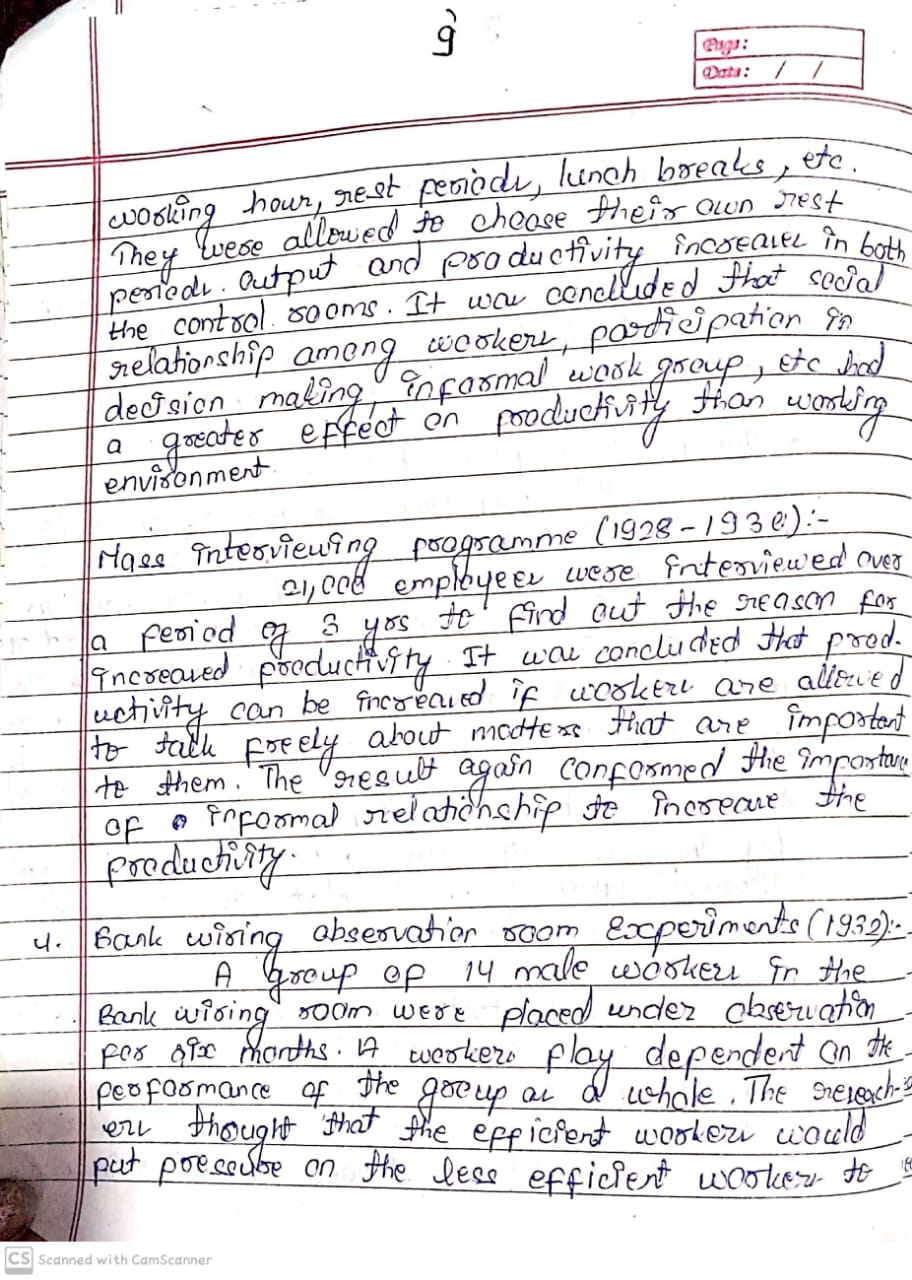 9
Page:
Date: / /
working hour, rest periods, lunch breaks, etc.
They were allowed to choose their own rest
periods. Output and productivity increases in both
the control rooms. It was concluded that social
relationship among workers, participation in
decision making, informal work group, etc had
a greater effect on productivity than working
environment.
Mass interviewing programme (1928-1930):-
21,000 employees were interviewed over
a period of 3 yrs to find out the reason for
increased productivity. It was concluded that prod-
uctivity can be increased if workers are allowed
to talk freely about matters that are important
to them. The result again conformed the importance
of informal relationship to increase the
productivity.
4. Bank wiring observation room experiments (1932):-
A group of 14 male workers in the
Bank wiring room were placed under observation
for six months. A workers play dependent on the
performance of the group as a whole. The research-
ers thought that the efficient workers would
put pressure on the less efficient worker to
CS Scanned with CamScanner